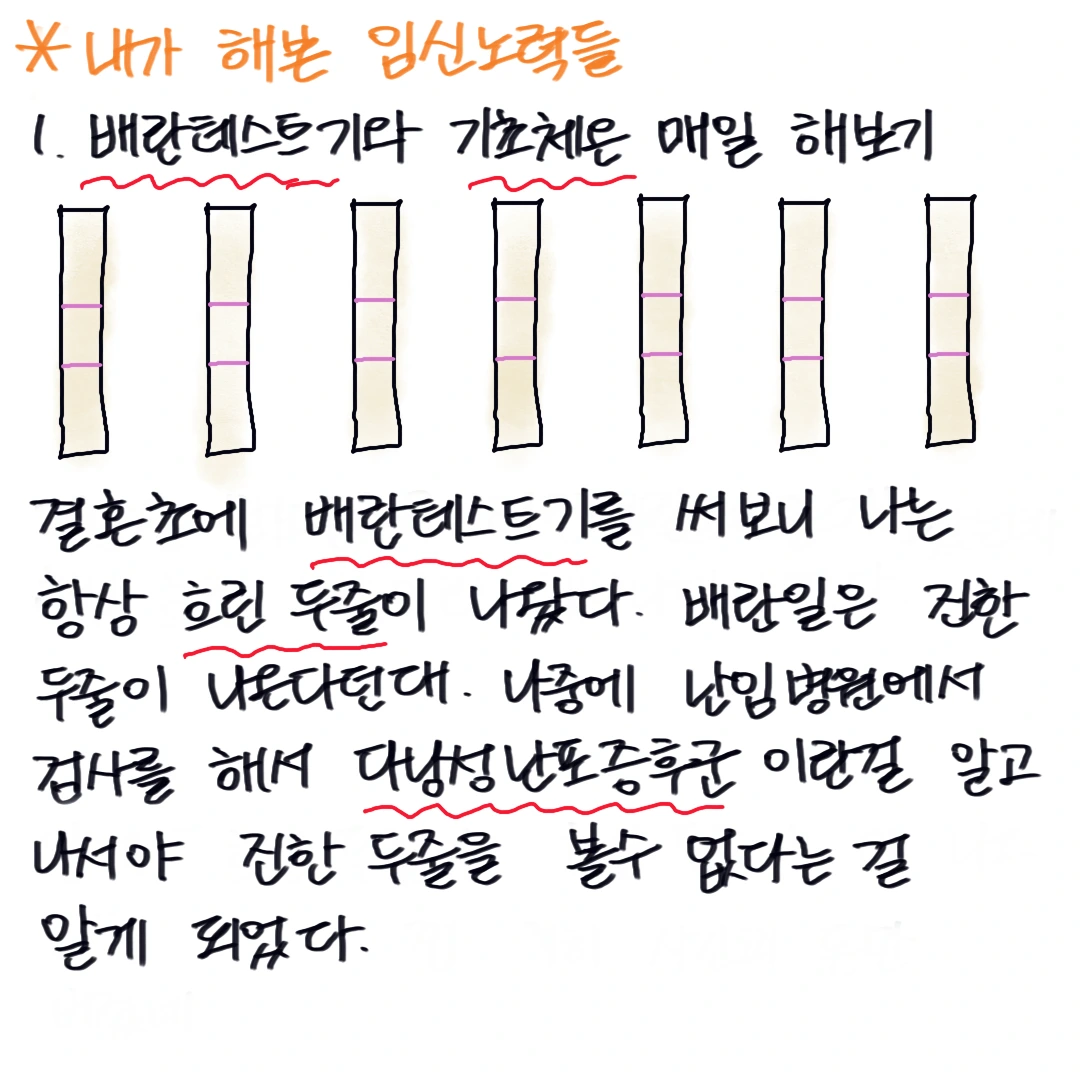 *내가 해본 임신노력들
1. 배란테스트기와 기초체온 매일 해보기
결혼초에 배란테스트기를 써보니 나는
항상 흐린 두줄이 나왔다. 배란일은 진한
두줄이 나온다던대. 나중에 난임병원에서
검사를 해서 다낭성난포증후군 이란걸 알고
나서야 진한 두줄을 볼수 없다는 걸
알게 되었다.